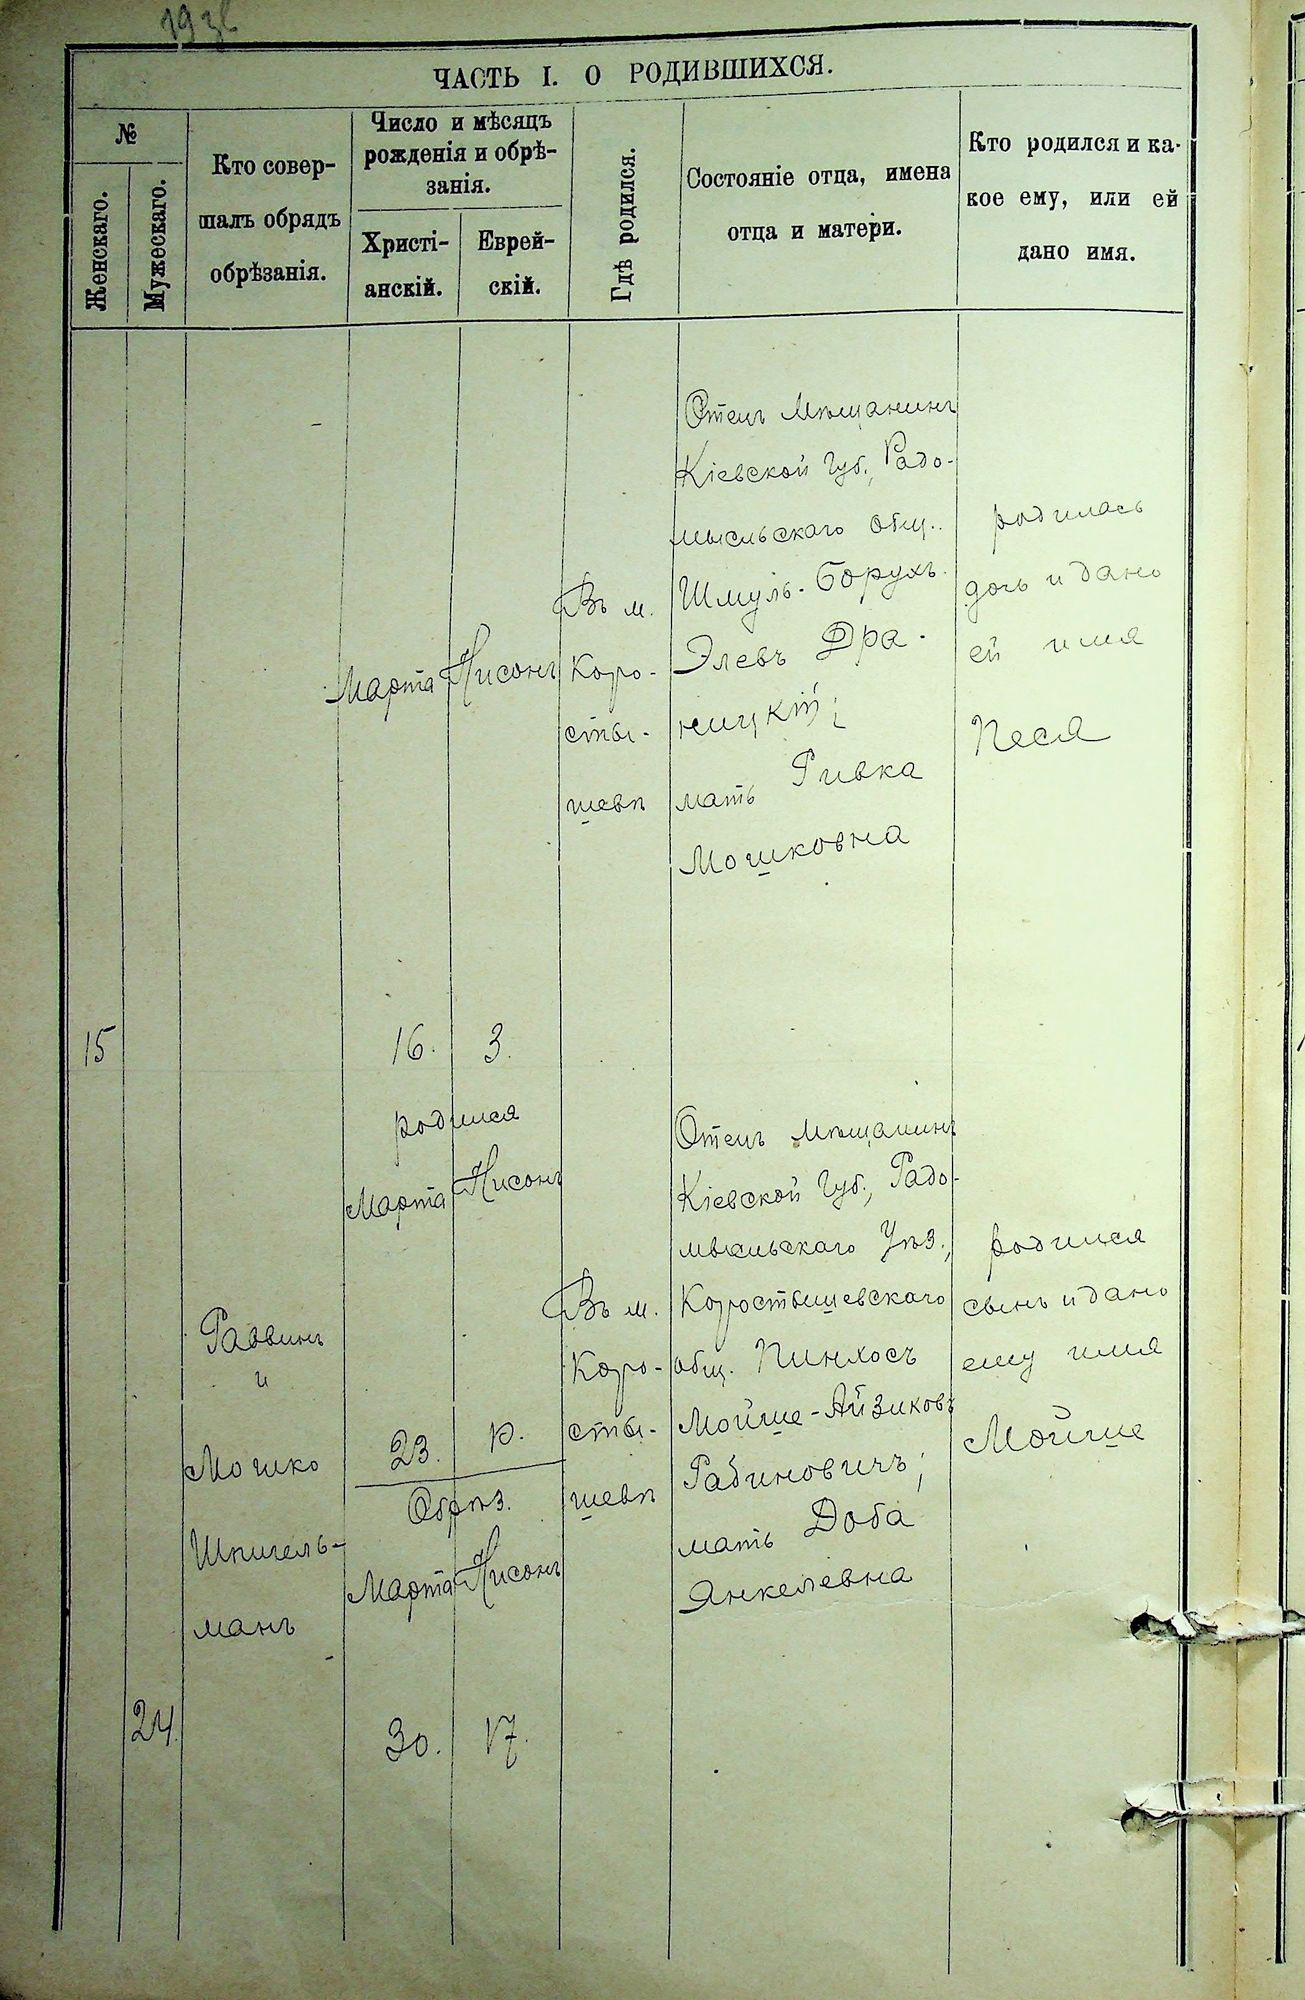 ЧАСТЬ I. О РОДИВШИХСЯ.
№
Женскаго.
Мужескаго.
Кто совер-
шалъ обрядъ
обрѣзанія.
Число и мѣсяцъ
рожденія и обрѣ-
занія.
Христі-
анскій.
Еврей-
скій.
Гдѣ родился.
Состояніе отца, имена
отца и матери.
Кто родился и ка-
кое ему, или ей
дано имя.
15
Марта
16.
Нисонъ
3.
Въ м.
Коро-
сты-
шевѣ
Отецъ мѣщанинъ
Кіевской Губ., Радо-
мысльскаго общ.
Шмуль-Борухъ
Элевъ Дра-
ницкій;
мать Ривка
Мошковна
родилась
дочь и дано
ей имя
Песя
24.
Раввинъ
и
Мошко
Шпигель-
манъ
родился
Марта Нисонъ
23. 10.
Обрѣз.
Марта Нисонъ
30. 17.
Въ м.
Коро-
сты-
шевѣ
Отецъ мѣщанинъ
Кіевской Губ., Радо-
мысльскаго Уѣз.,
Коростышевскаго
общ. Пинхосъ
Мойше-Айзиковъ
Рабиновичъ;
мать Доба
Янкелевна
родился
сынъ и дано
ему имя
Мойше